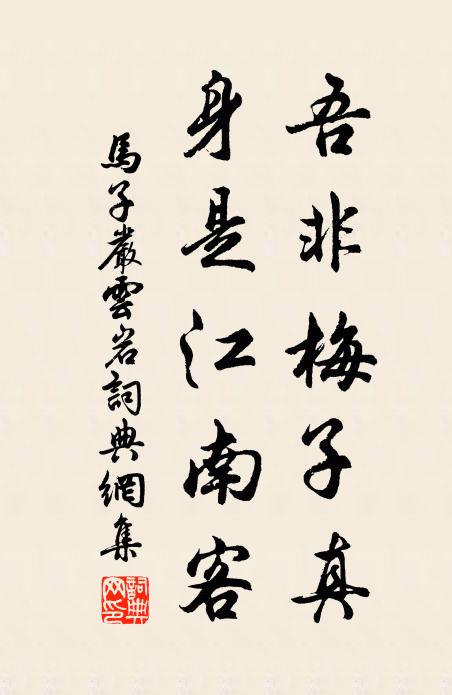 吾非梅子真
身是江南客
馬子嚴雲岩詞典網集
詞典网印